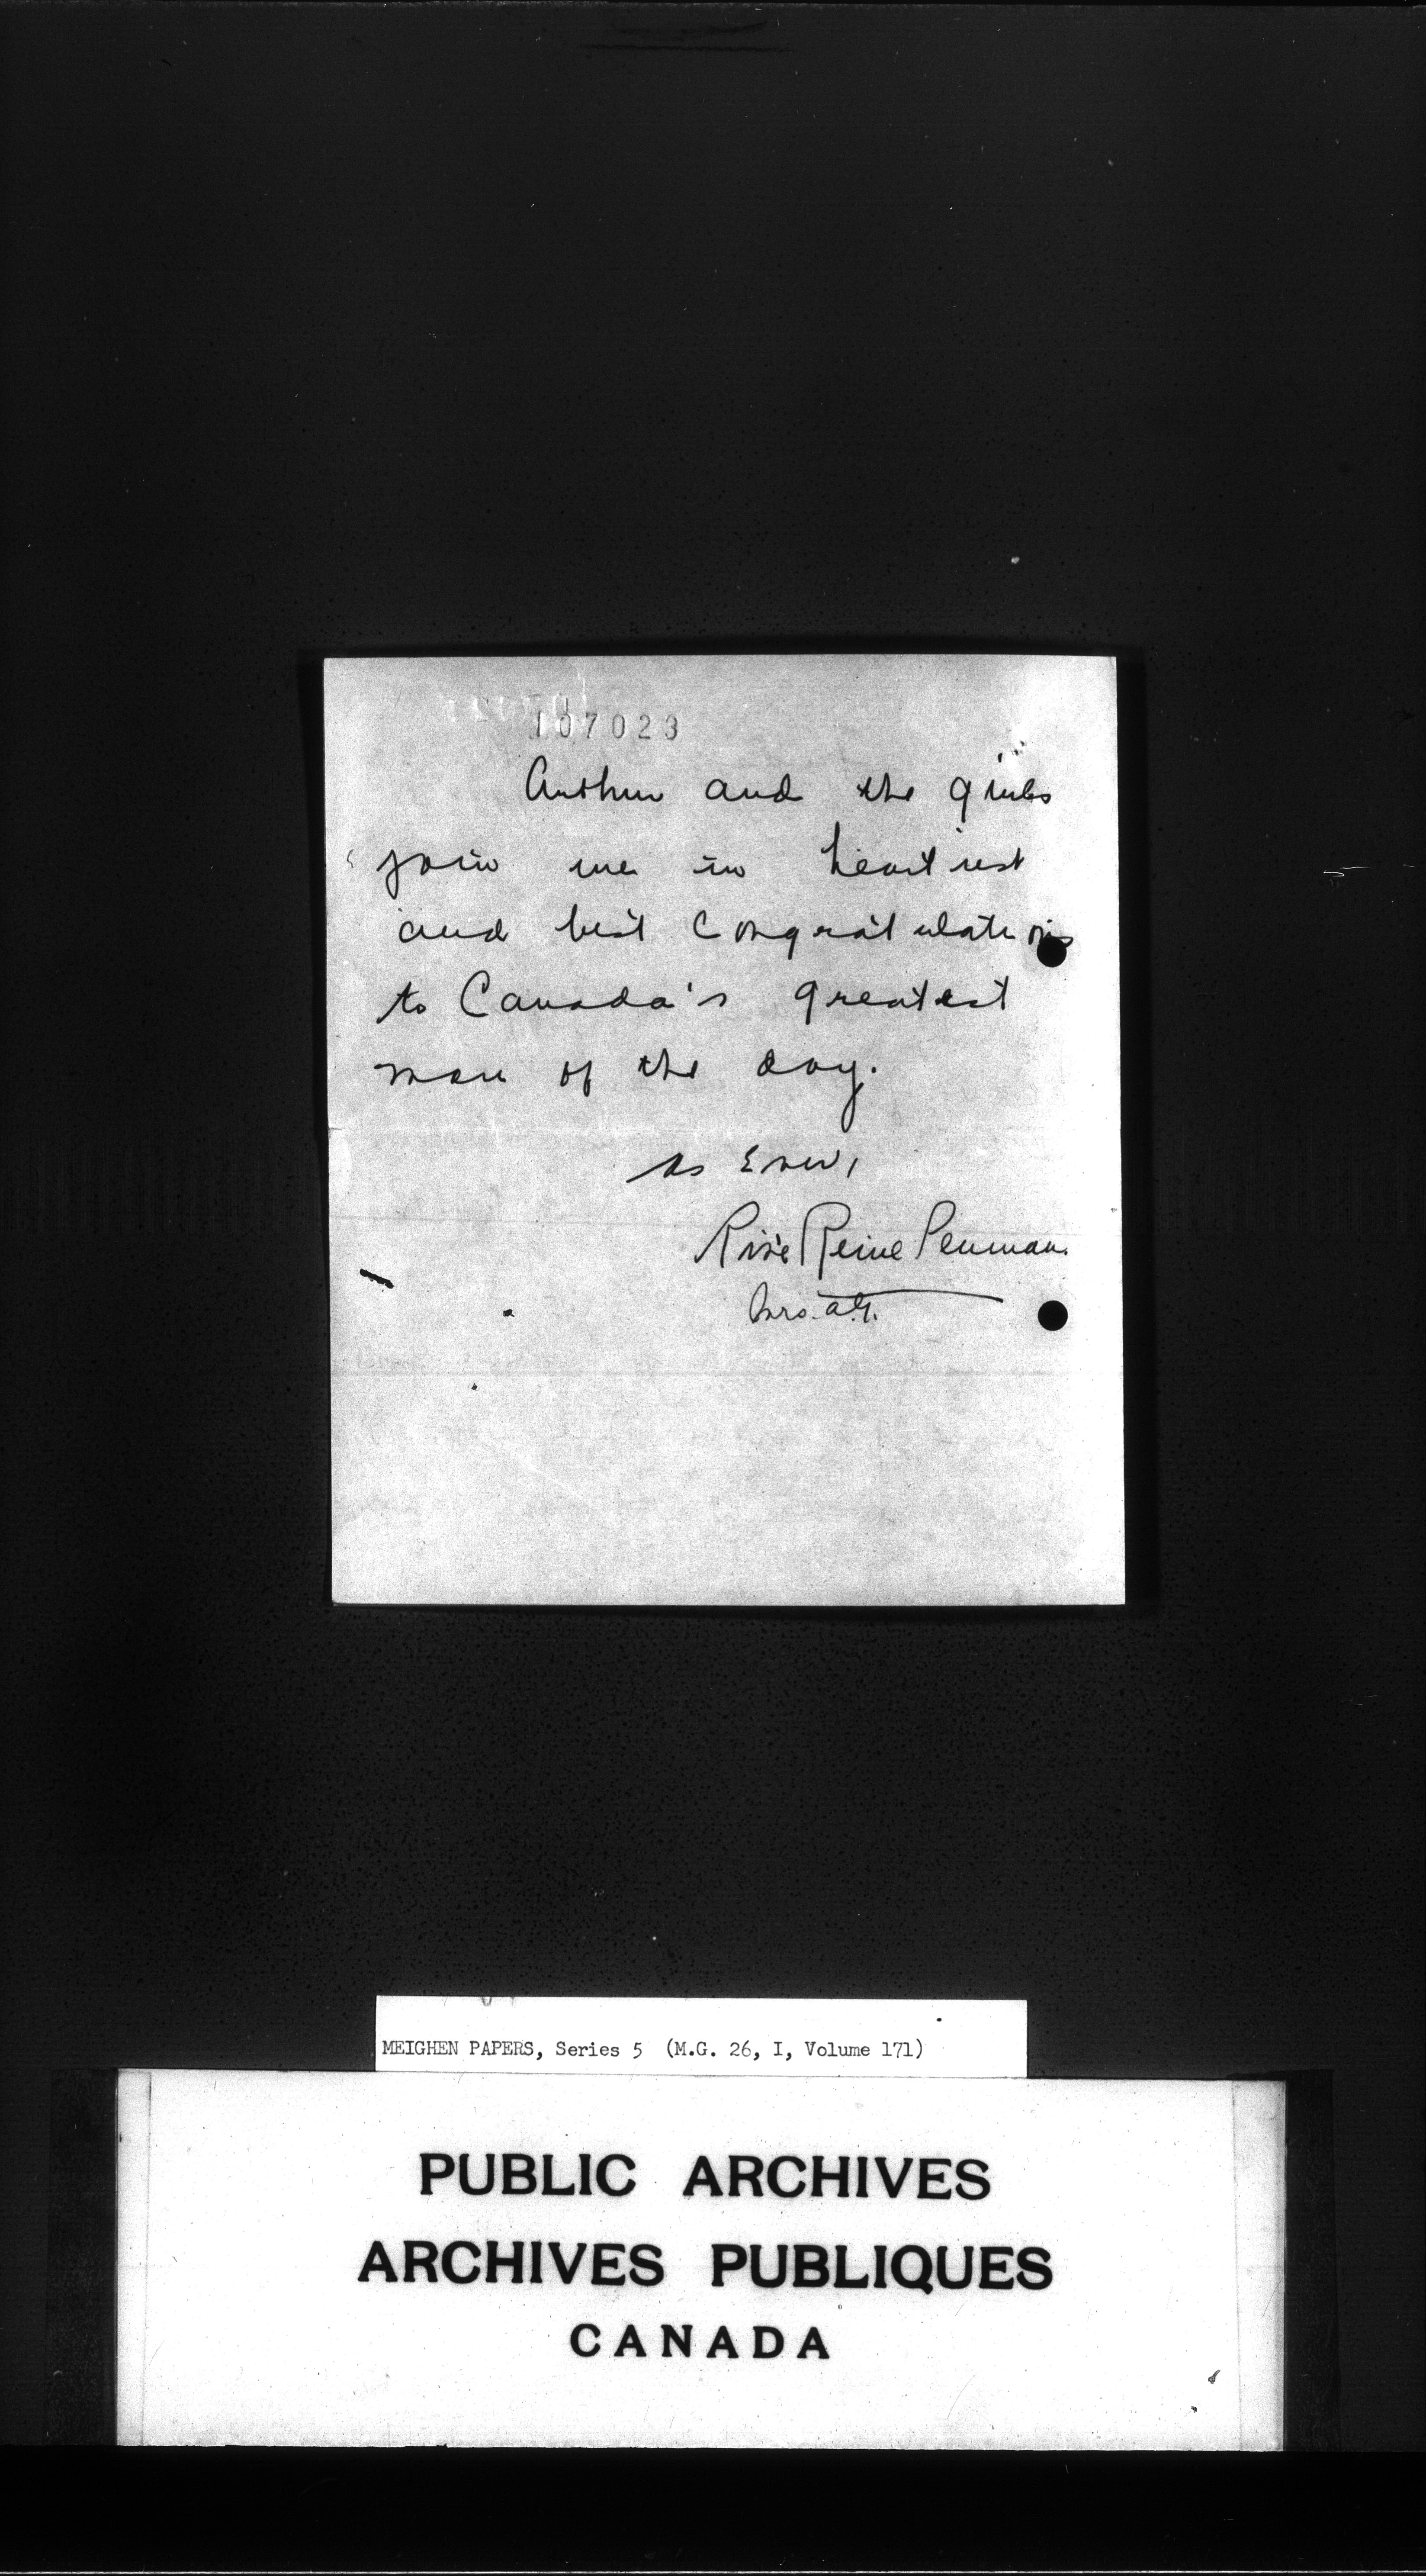 107023
Arthur and the girls
join me in heartiest
and best congratulations
to Canada's greatest
man of the day.
As Ever,
Reine Penman
Mrs. A.G.
MEIGHEN PAPERS, Series 5 (M.G. 26, I, Volume 171)
PUBLIC ARCHIVES
ARCHIVES PUBLIQUES
CANADA